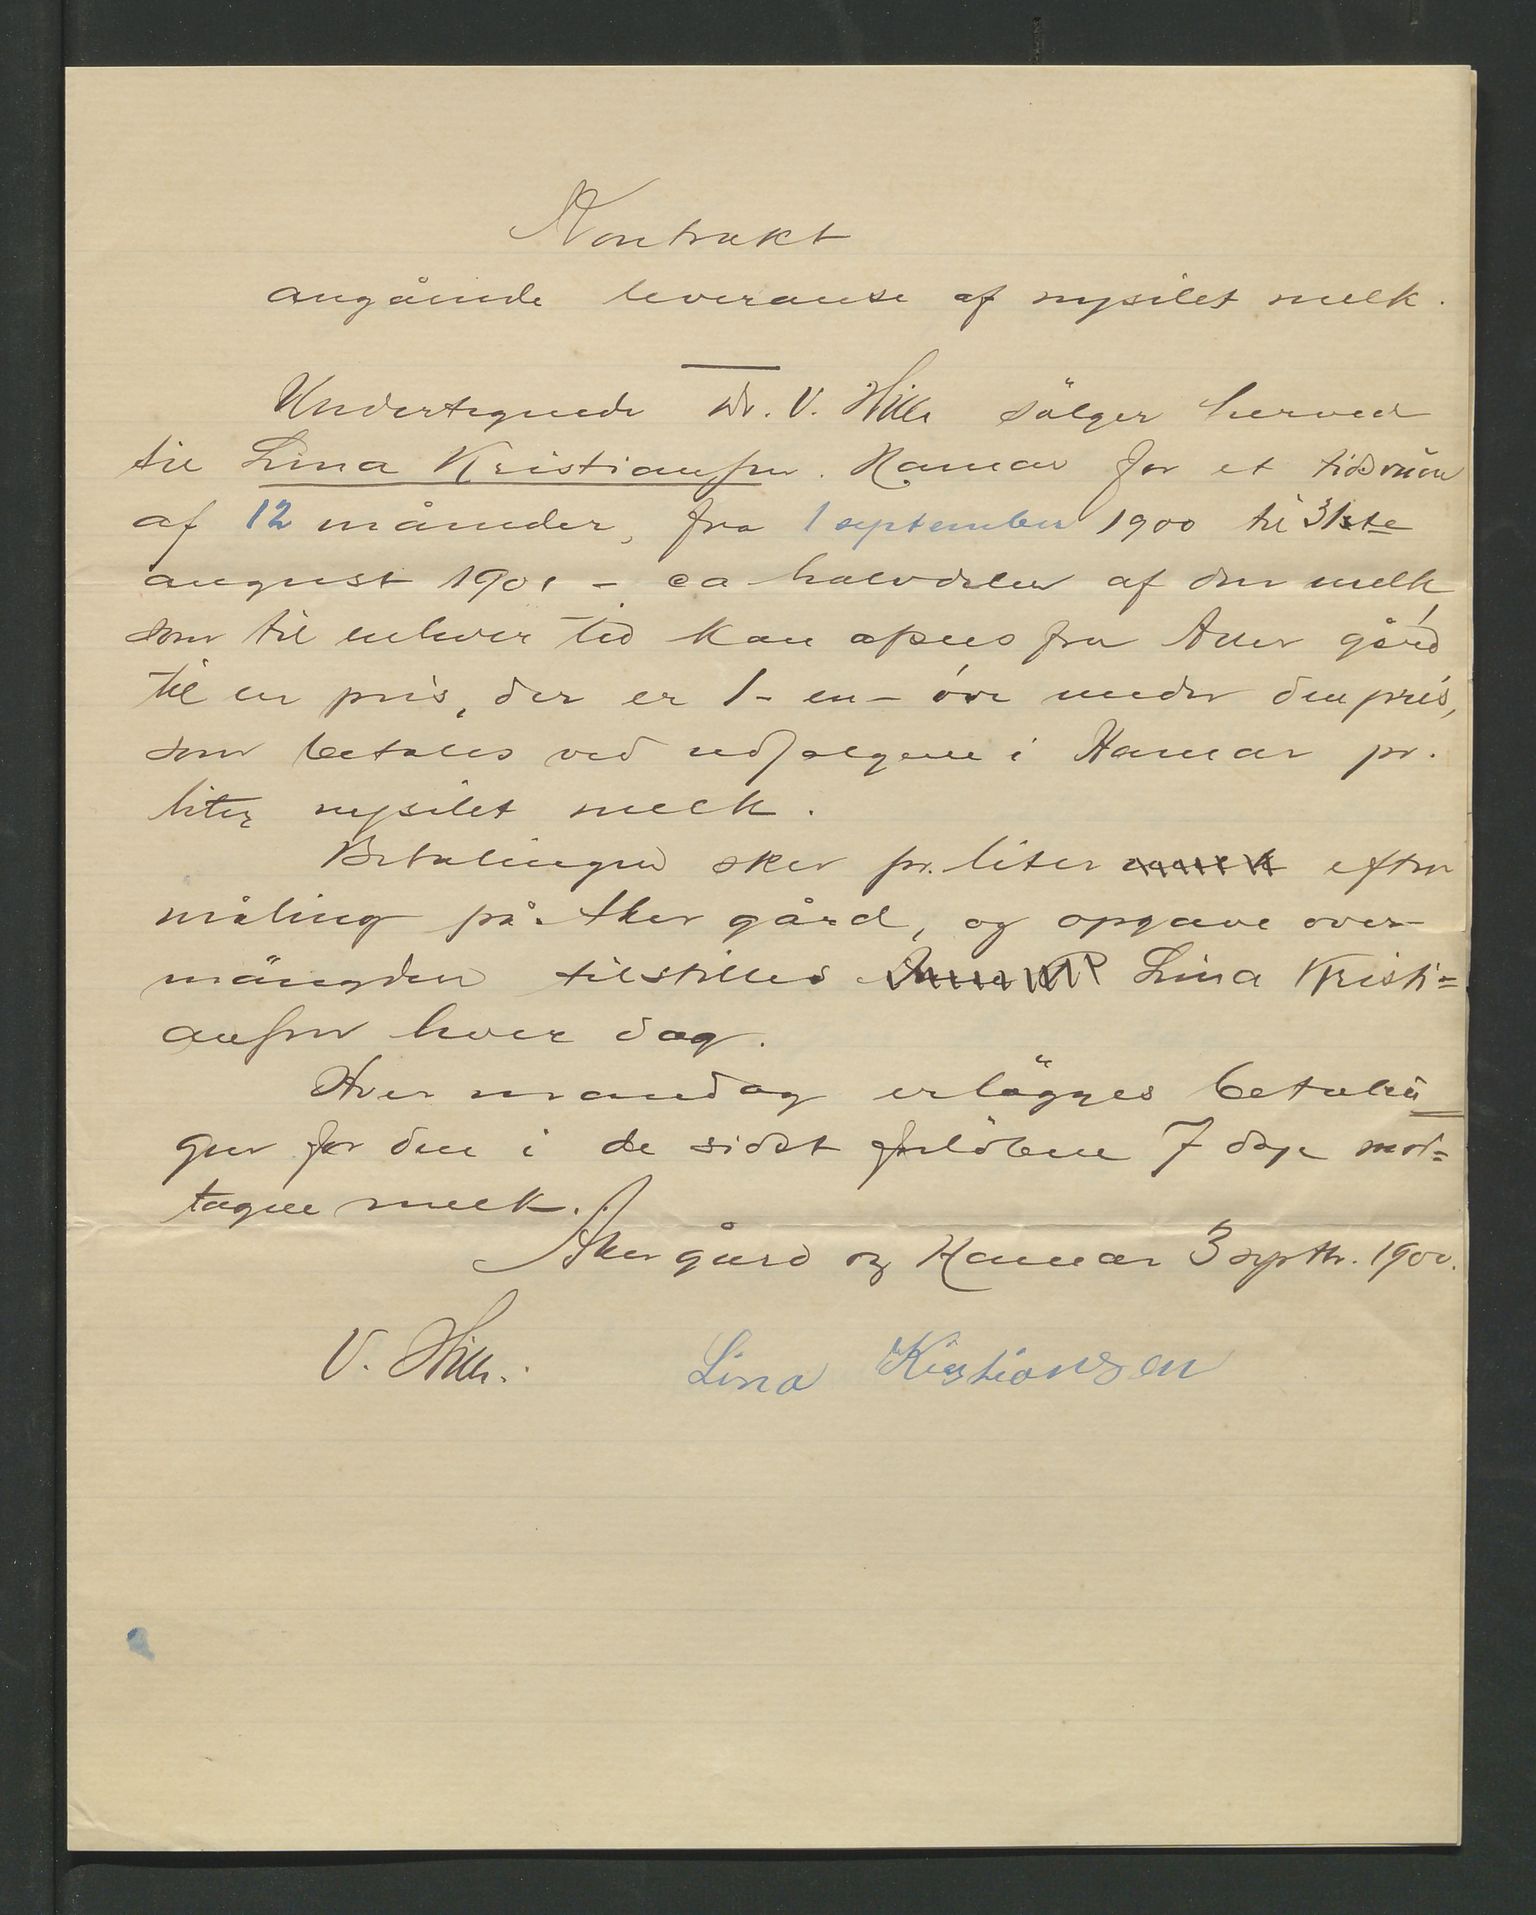 Kontrakt
angående leveranse af nysilet melk.
Undertegnede Dr. V. Hille sälger herved
til Lina Kristiansen. Hamar for et tidsrum
af 12 måneder, fra 1 september 1900 til 31ste
august 1901 - ca halvdelen af den melk,
som til enhver tid kan afsees fra Aker gård
til en pris, der er 1 - en - öre under den pris,
som betales ved udsalgene i Hamar pr.
liter nysilet melk.
Betalingen sker pr. liter efter
måling på Aker gård, og opgave over
mängden tilstilles Lina Kristi=
ansen hver dag.
Hver mandag erlägges betalin=
gen for den i de sidst forlöbne 7 dage mod=
tagne melk.
Aker gård og Hamar 3 septbr. 1900.
V. Hille. Lina Kristiansen